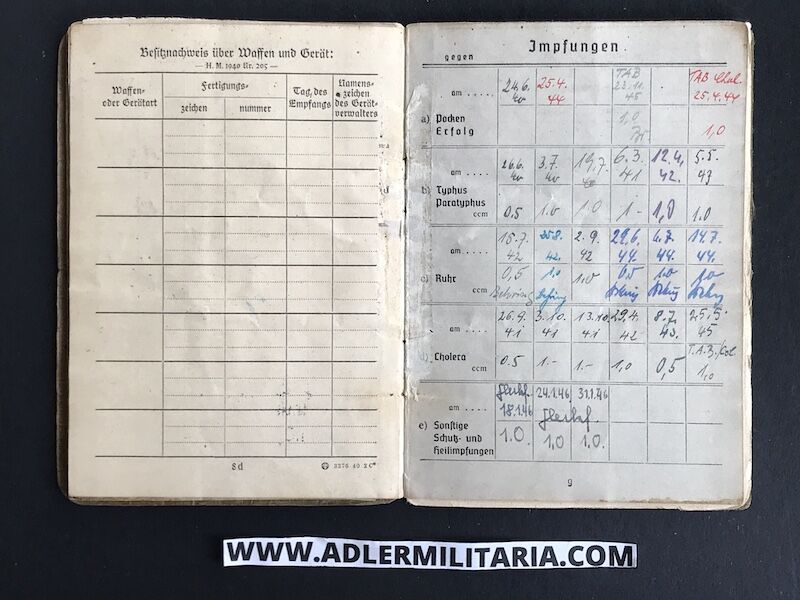 Besitznachweis über Waffen und Gerät:
— H. M. 1940 Nr. 205 —
Waffen-
oder Gerätart
Fertigungs-
zeichen
nummer
Tag des
Empfangs
Namens-
zeichen
des Gerät-
verwalters
8d
3276 40 2 C
Impfungen
gegen
am ..... 24.6. 40 25.4. 44 TAB 23.11. 45 TAB Chol. 25.4.44
a) Pocken
Erfolg 1,0 1,0
am ..... 26.6. 40 3.7. 40 19.7. 40 6.3. 41 12.4. 42. 5.5. 43
b) Typhus
Paratyphus
ccm 0.5 1.0 1.0 1.- 1,0 1.0
am ..... 15.7. 42 25.8. 42. 2.9. 42 29.6. 44. 6.7. 44. 14.7. 44.
c) Ruhr
ccm 0,5 1,0 1,0 0,5 1,0 1,0
Behring Behring
am ..... 26.9. 41 3.10. 41 13.10. 41 29.4. 42 8.7. 43. 25.5. 45
d) Cholera T.A.B./Col.
ccm 0.5 1.- 1.- 1,0 0,5 1,0
am ..... Fleckf. 18.1.46 24.1.46 31.1.46
Fleckf.
e) Sonstige
Schutz- und
Heilimpfungen
1.0. 1,0 1.0.
9
WWW.ADLERMILITARIA.COM